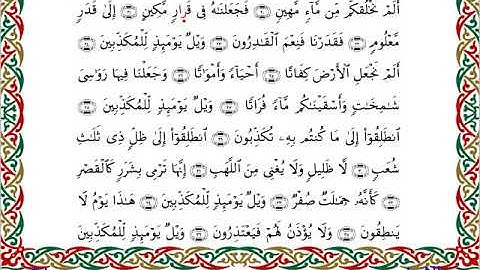 أَلَمْ نَخْلُقكُّم مِّن مَّآءٍ مَّهِينٍ ۝٢٠ فَجَعَلْنَٰهُ فِى قَرَارٍ مَّكِينٍ ۝٢١ إِلَىٰ قَدَرٍ
مَّعْلُومٍ ۝٢٢ فَقَدَرْنَا فَنِعْمَ ٱلْقَٰدِرُونَ ۝٢٣ وَيْلٌ يَوْمَئِذٍ لِّلْمُكَذِّبِينَ ۝٢٤
أَلَمْ نَجْعَلِ ٱلْأَرْضَ كِفَاتًا ۝٢٥ أَحْيَآءً وَأَمْوَٰتًا ۝٢٦ وَجَعَلْنَا فِيهَا رَوَٰسِىَ
شَٰمِخَٰتٍ وَأَسْقَيْنَٰكُم مَّآءً فُرَاتًا ۝٢٧ وَيْلٌ يَوْمَئِذٍ لِّلْمُكَذِّبِينَ ۝٢٨
ٱنطَلِقُوٓا۟ إِلَىٰ مَا كُنتُم بِهِۦ تُكَذِّبُونَ ۝٢٩ ٱنطَلِقُوٓا۟ إِلَىٰ ظِلٍّ ذِى ثَلَٰثِ
شُعَبٍ ۝٣٠ لَّا ظَلِيلٍ وَلَا يُغْنِى مِنَ ٱللَّهَبِ ۝٣١ إِنَّهَا تَرْمِى بِشَرَرٍ كَٱلْقَصْرِ
۝٣٢ كَأَنَّهُۥ جِمَٰلَتٌ صُفْرٌ ۝٣٣ وَيْلٌ يَوْمَئِذٍ لِّلْمُكَذِّبِينَ ۝٣٤ هَٰذَا يَوْمُ لَا
يَنطِقُونَ ۝٣٥ وَلَا يُؤْذَنُ لَهُمْ فَيَعْتَذِرُونَ ۝٣٦ وَيْلٌ يَوْمَئِذٍ لِّلْمُكَذِّبِينَ